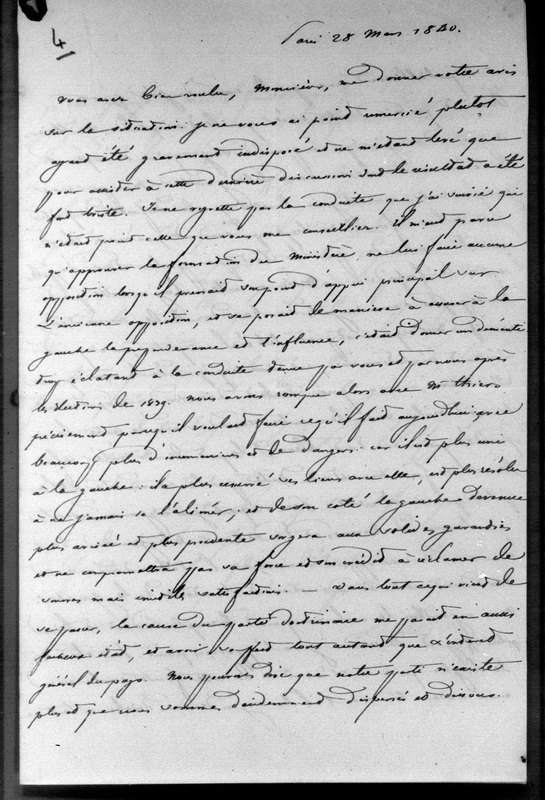 41
Paris 28 Mars 1840.
vous avez bien voulu, Monsieur, me donner votre avis
sur la situation. je ne vous ai point remercié plutot
ayant été gravement indisposé et ne m'étant levé que
pour assister à cette dernière discussion dont le résultat a été
fort triste. Je ne regrette pas la conduite que j'ai suivie qui
n'était point celle que vous me conseilliez. il m'eut paru
qu'approuver la formation du Ministère, ne lui faire aucune
opposition lorsqu'il prenait son point d'appui principal sur
L'ancienne opposition, et se posait de manière à assurer à la
gauche la prépondérance et l'influence, c'était donner un démenti
trop éclatant à la conduite tenue par vous et par nous après
les élections de 1839. nous avons rompu alors avec Mr Thiers
précisément parcequ'il voulait faire ce qu'il fait aujourd'hui avec
beaucoup plus d'inconvéniens et de dangers: car il est plus uni
à la gauche: il a plus resserré ses liens avec elle, est plus résolu
à ne jamais se l'aliéner, et de son coté la gauche devenue
plus avisée et plus prudente songera aux solides garanties
et ne compromettra pas sa force et son crédit à réclamer de
vaines mais inutiles satisfactions. — Dans tout ce qui vient de
se passer, la cause du parti doctrinaire me parait en aussi
facheux état, et avoir souffert tout autant que L'intérêt
général du pays. Nous pouvons dire que notre parti n'existe
plus et que nous sommes entièrement dispersés et dissous.